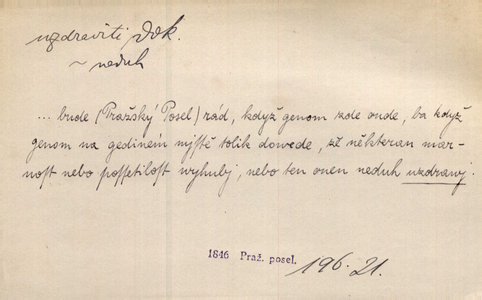 uzdraviti dok.
~ neduh
... bude (Pražský Posel) rád, když genom zde onde, ba když
genom na gediném mjstě tolik dowede, že některau mar-
nost nebo poſſetiloſt wyhubj, nebo ten onen neduh uzdrawj.
1846 Praž. posel.
196. 21.